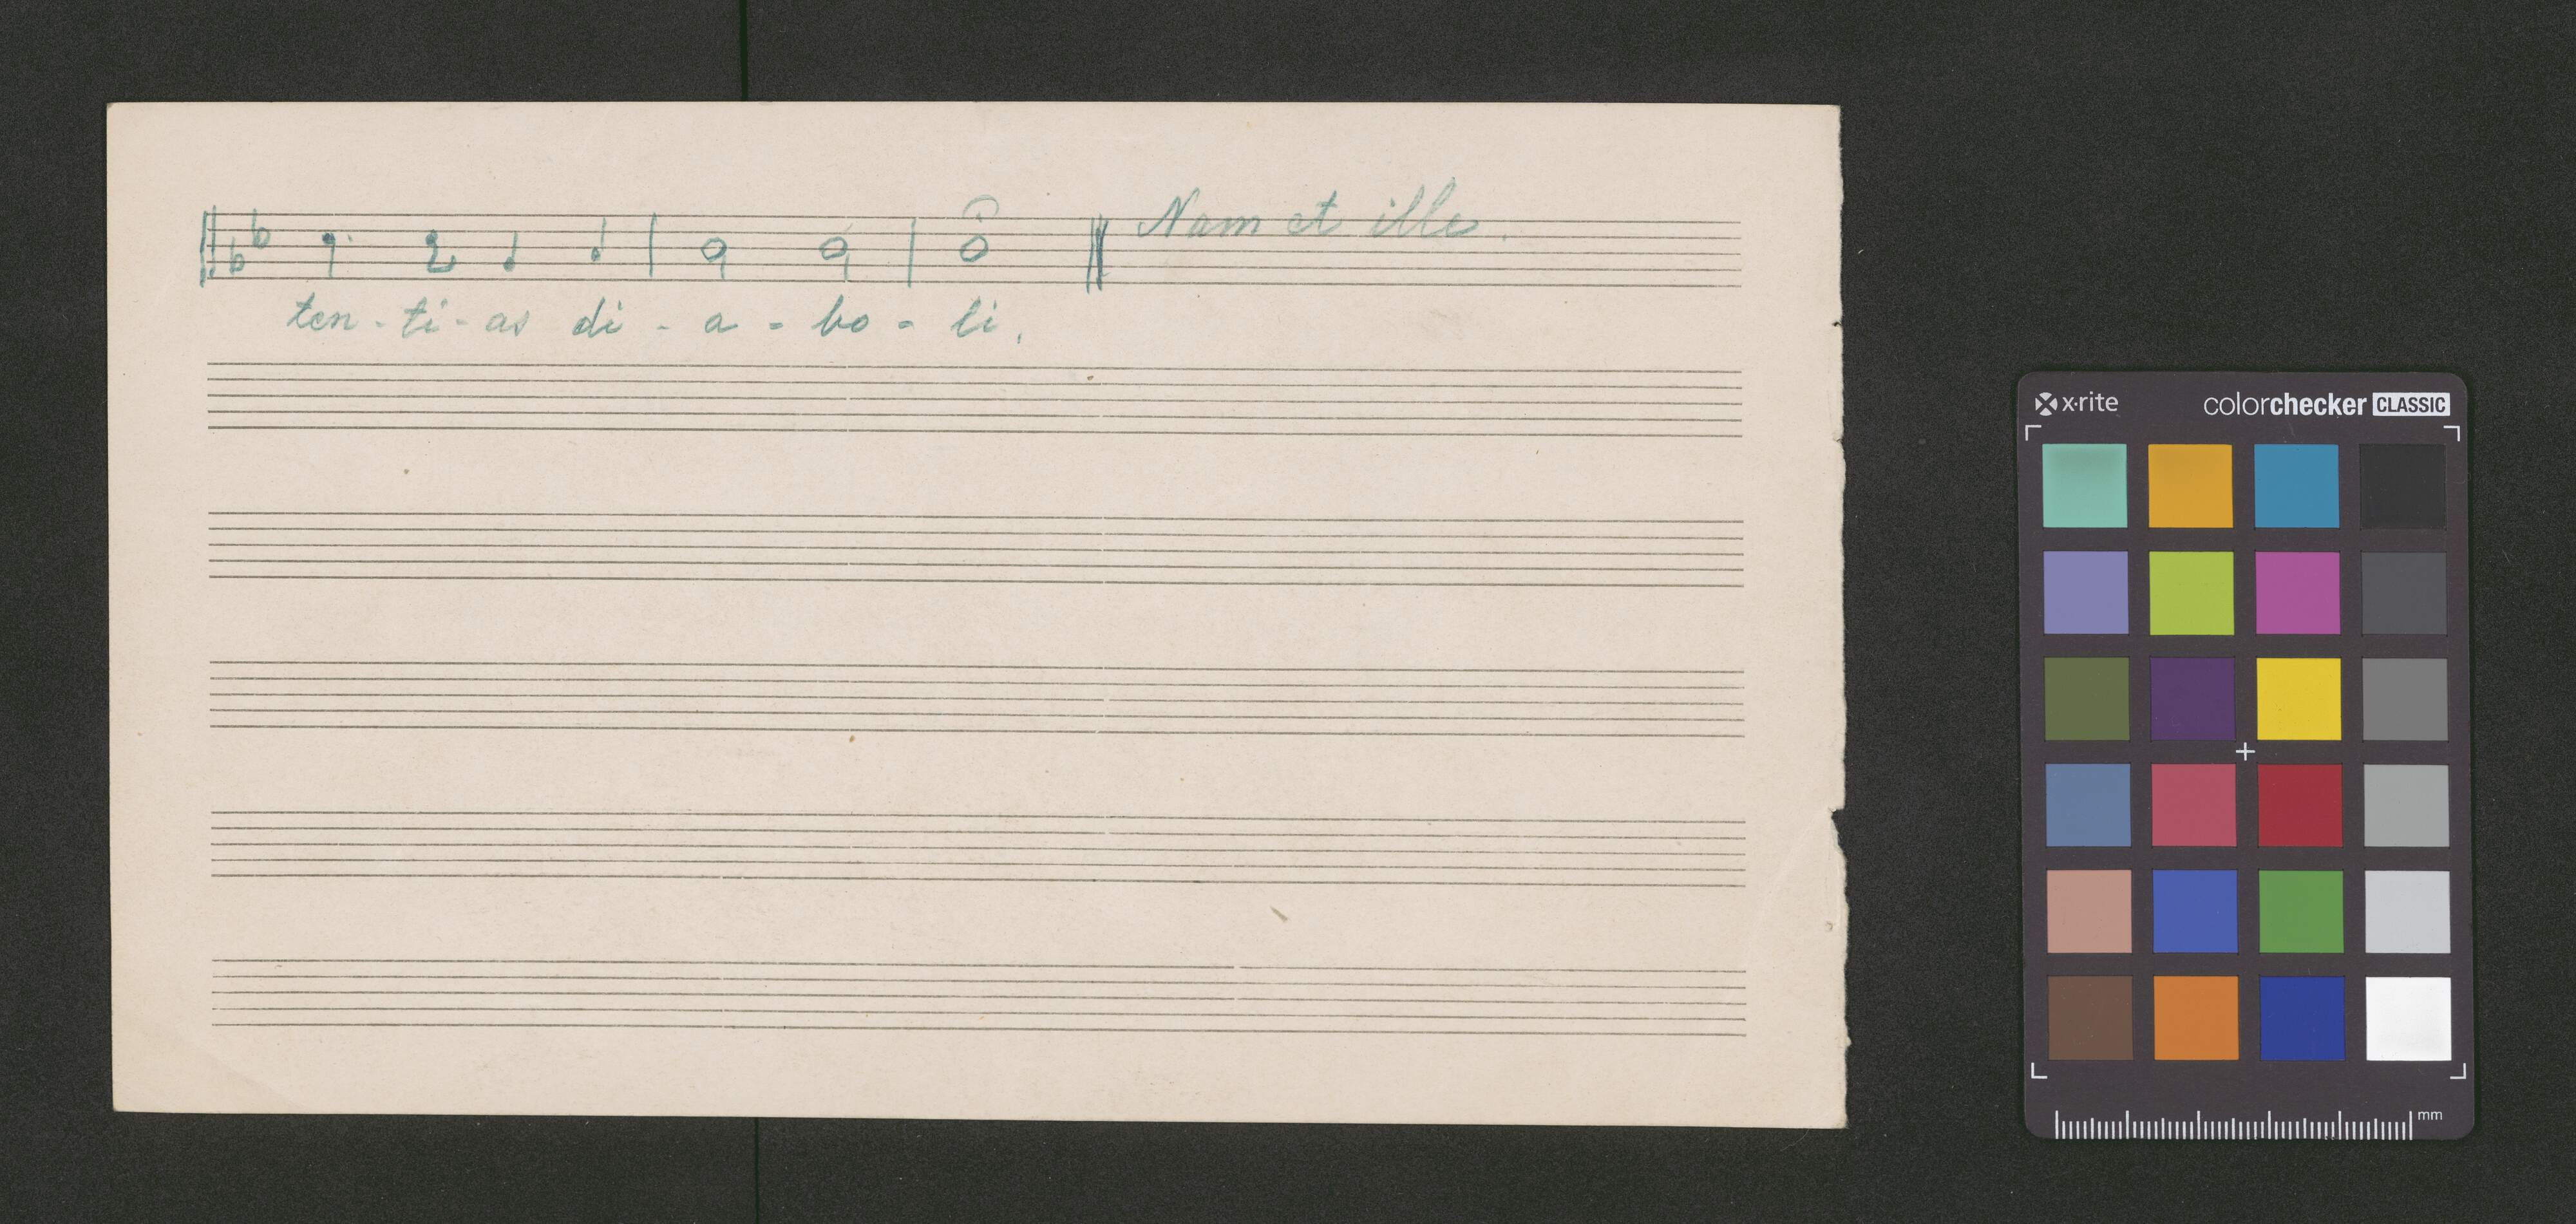 Nam et ille.
ten - ti - as di - a - bo - li.
x·rite colorchecker CLASSIC
mm